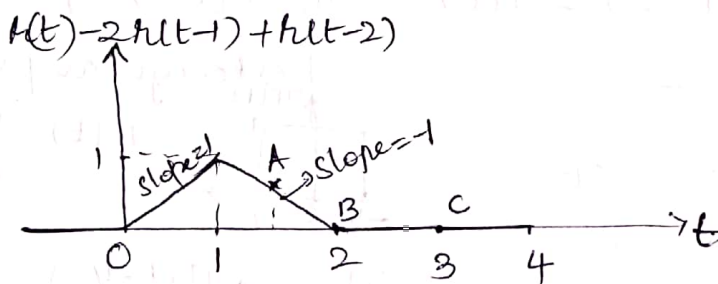 r(t)-2r(t-1)+r(t-2)
1
slope=1
A
slope=-1
B
C
t
0 1 2 3 4